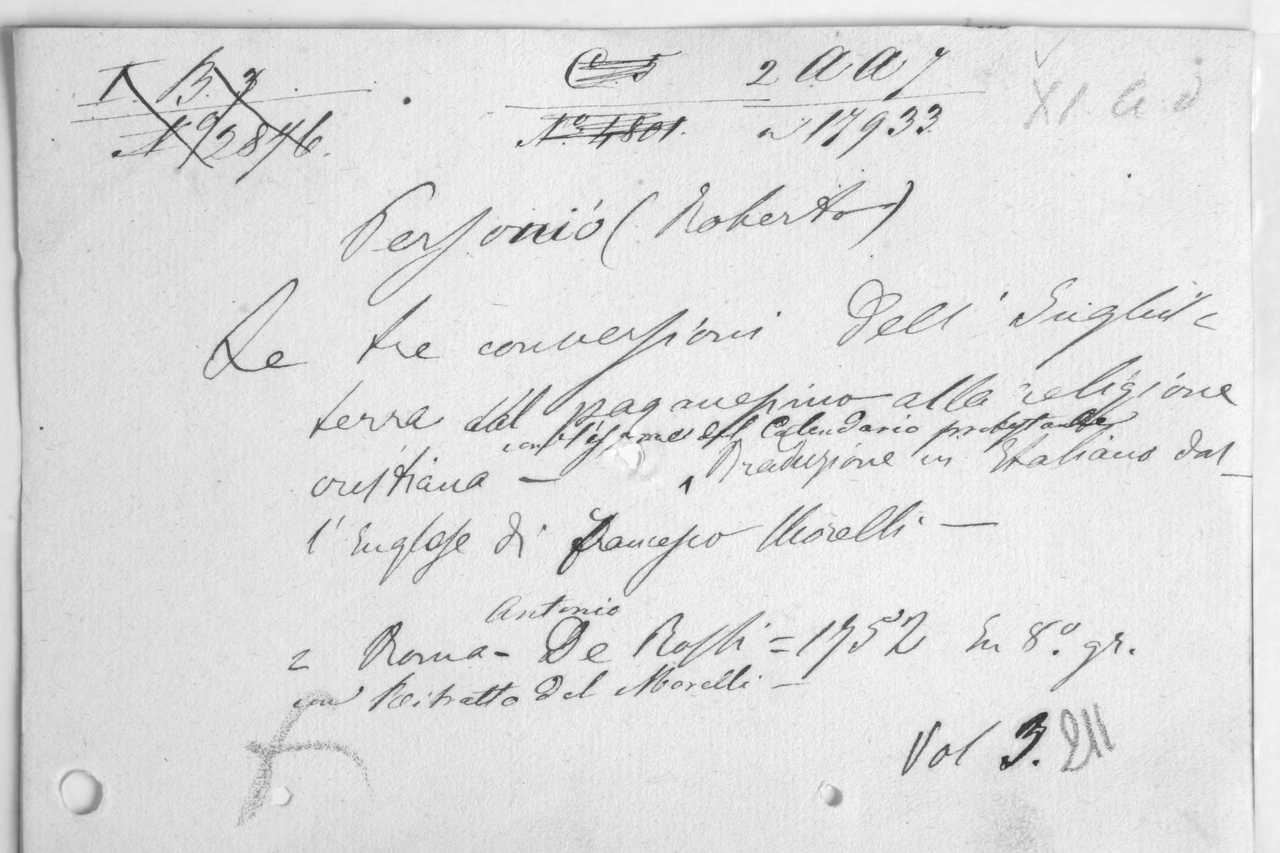 I. B 3
Nº 2846.
C 5
Nº 4801.
2 A A 7
n 17933
XI. G d
Personio (Roberto)
Le tre conversioni dell' Inghil-
terra dal paganesimo alla religione
con l'esame del Calendario protestante
cristiana — Traduzione in Italiano dal-
l'Inglese di Francesco Morelli —
Antonio
= Roma - De Rossi = 1752 In 8º. gr.
con Ritratto del Morelli —
Vol 3.